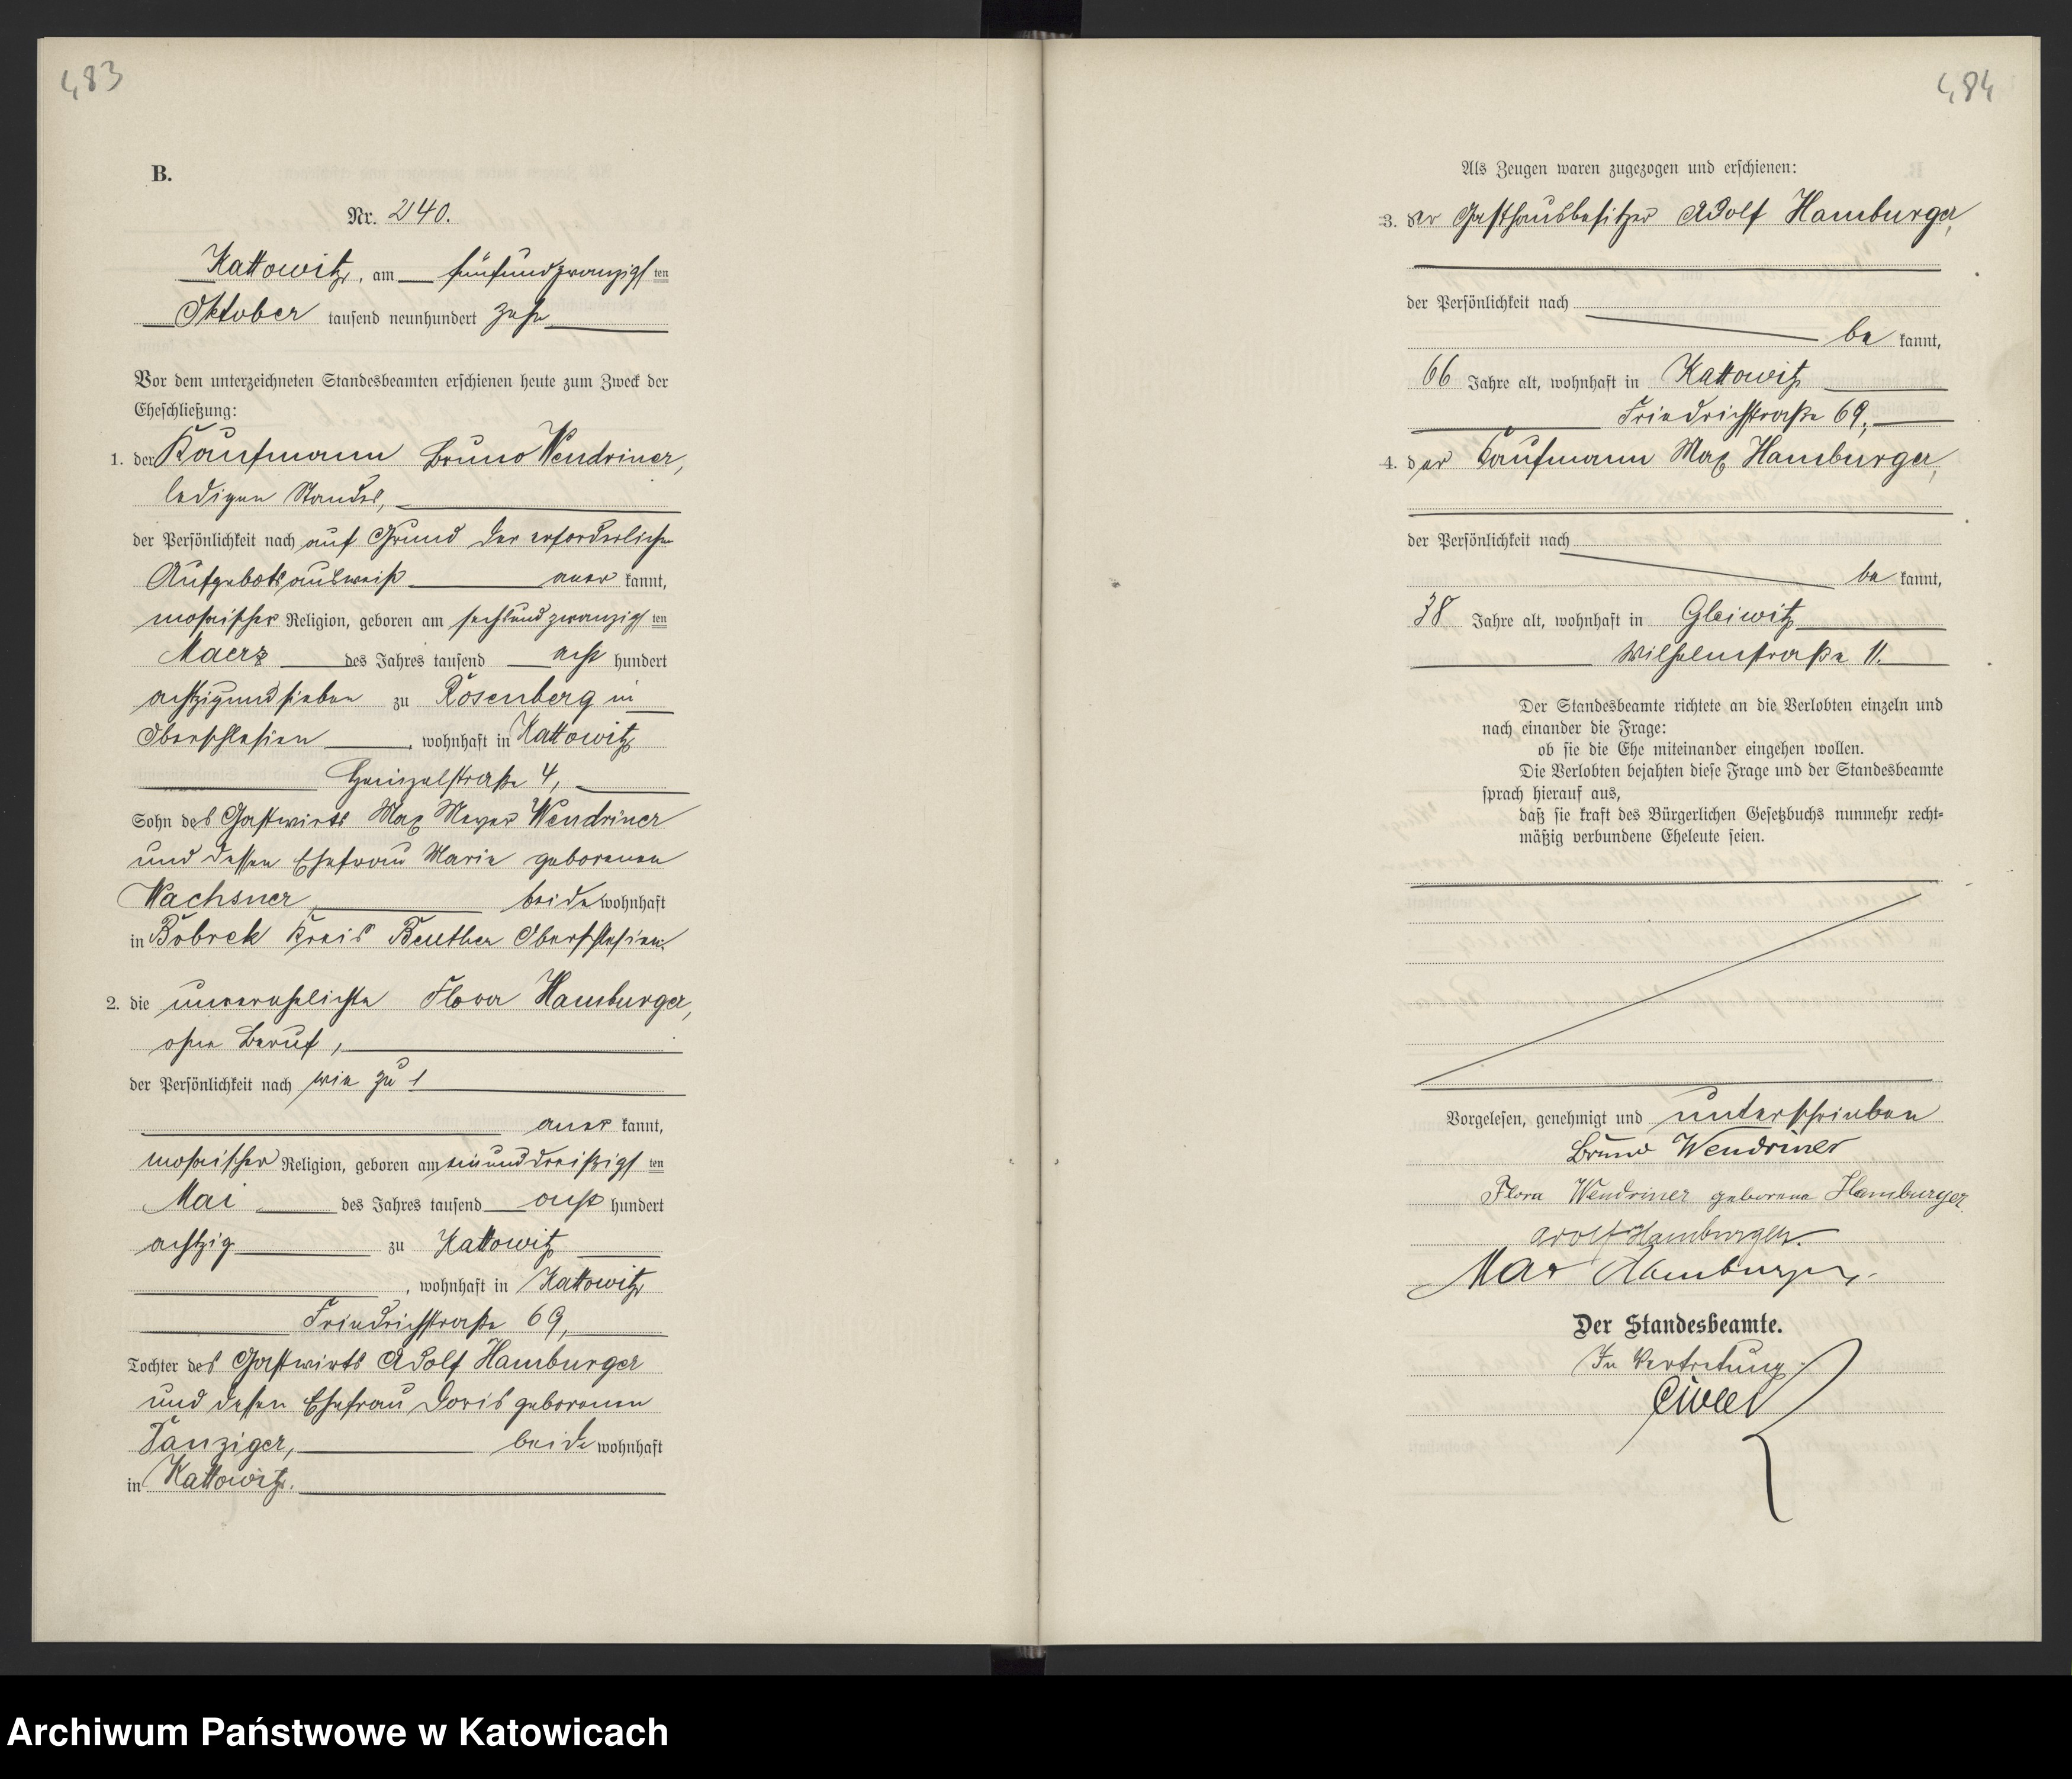 483
B.
Nr. 240.
Kattowitz, am fünfundzwanzigsten
Oktober tausend neunhundert zehn
Vor dem unterzeichneten Standesbeamten erschienen heute zum Zweck der
Eheschließung:
1. der Kaufmann Bruno Wendriner,
ledigen Standes,
der Persönlichkeit nach auf Grund der erforderlichen
Aufgebotsausweise anerkannt,
mosaischer Religion, geboren am sechsundzwanzigsten
Maerz des Jahres tausend acht hundert
achtzigundsieben zu Rosenberg in
Oberschlesien, wohnhaft in Kattowitz
Heinzelstraße 4,
Sohn des Gastwirts Max Meyer Wendriner
und dessen Ehefrau Marie geborenen
Wachsner, beide wohnhaft
in Bobrek Kreis Beuthen Oberschlesien.
2. die unverehelichte Flora Hamburger,
ohne Beruf,
der Persönlichkeit nach wie zu 1
anerkannt,
mosaischer Religion, geboren am einunddreißigsten
Mai des Jahres tausend acht hundert
achtzig zu Kattowitz
, wohnhaft in Kattowitz
Friedrichstraße 69,
Tochter des Gastwirts Adolf Hamburger
und dessen Ehefrau Doris geborenen
Danziger, beide wohnhaft
in Kattowitz.
484
Als Zeugen waren zugezogen und erschienen:
3. der Gasthausbesitzer Adolf Hamburger,
der Persönlichkeit nach
bekannt,
66 Jahre alt, wohnhaft in Kattowitz
Friedrichstraße 69;
4. der Kaufmann Max Hamburger,
der Persönlichkeit nach
bekannt,
38 Jahre alt, wohnhaft in Gleiwitz
Wilhelmstraße 11.
Der Standesbeamte richtete an die Verlobten einzeln und
nach einander die Frage:
ob sie die Ehe miteinander eingehen wollen.
Die Verlobten bejahten diese Frage und der Standesbeamte
sprach hierauf aus,
daß sie kraft des Bürgerlichen Gesetzbuchs nunmehr recht-
mäßig verbundene Eheleute seien.
Vorgelesen, genehmigt und unterschrieben
Bruno Wendriner
Flora Wendriner geborene Hamburger
Adolf Hamburger.
Max Hamburger.
Der Standesbeamte.
In Vertretung:
Archiwum Państwowe w Katowicach